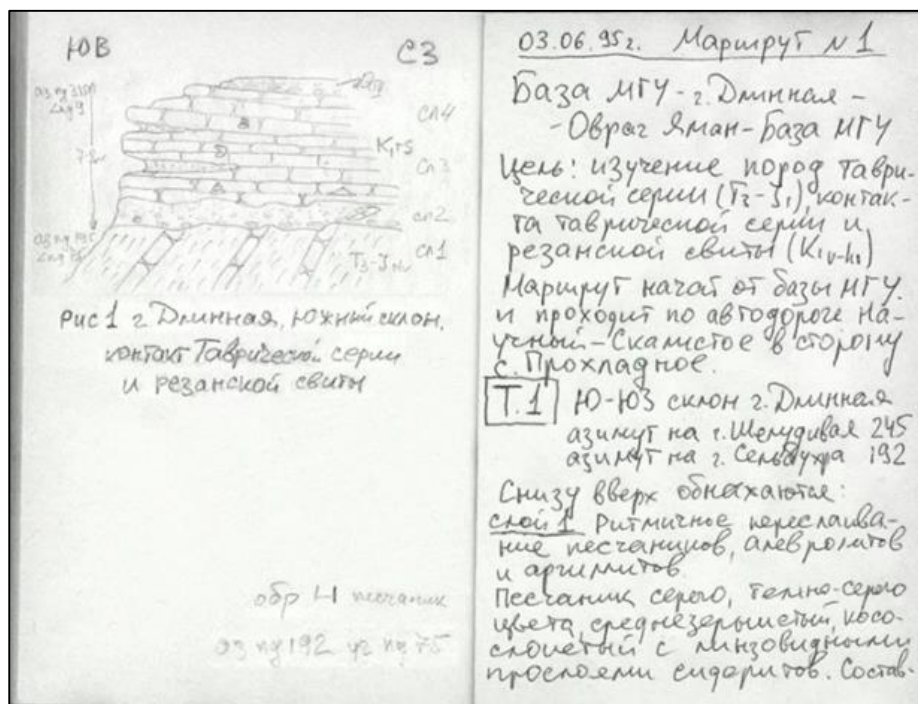 ЮВ
СЗ
аз пд 310
сл4
K₁rs
7м
сл3
сл2
сл1
T₃-J₁
Рис 1 г. Длинная, южный склон,
контакт Таврической серии
и резанской свиты
обр 1-1 песчаник
аз пд 192 уг пд 75
03.06.95г. Маршрут N1
База МГУ - г. Длинная -
- Овраг Яман - База МГУ
Цель: изучение пород Таври-
ческой серии (T₃-J₁), контак-
та таврической серии и
резанской свиты (K₁v-h₁)
Маршрут начат от базы МГУ
и проходит по автодороге На-
учный - Скалистое в сторону
с. Прохладное.
Т.1 Ю-ЮЗ склон г. Длинная
азимут на г. Шелудивая 245
азимут на г. Сельбухра 192
Снизу вверх обнажаются:
слой 1 Ритмичное переслаива-
ние песчаников, алевролитов
и аргиллитов.
Песчаник серого, темно-серого
цвета, среднезернистый, косо-
слоистый с линзовидными
прослоями сидеритов. Состав-